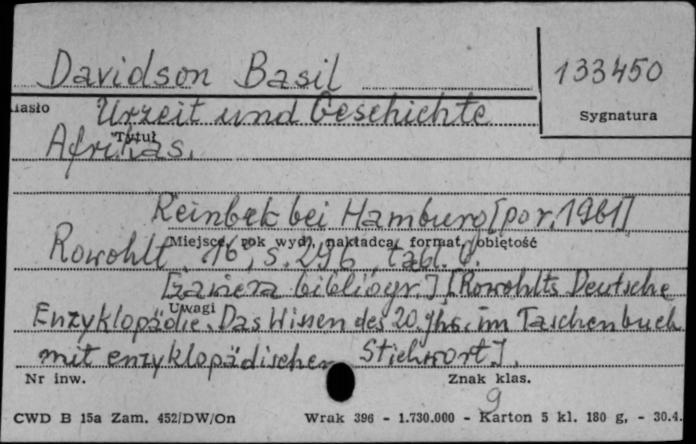 Davidson Basil
133450
Hasło
Sygnatura
Urzeit und Geschichte
Tytuł
Afrikas.
Reinbek bei Hamburg [por. 1961]
Miejsce, rok wyd., nakładca, format, objętość
Rowohlt 16, s. 296, tabl. 8.
[zawiera bibliogr.] [Rowohlts Deutsche
Uwagi
Enzyklopädie. Das Wissen des 20. Jhs. im Taschenbuch
mit enzyklopädischem Stichwort].
Nr inw.
Znak klas.
9
CWD B 15a Zam. 452/DW/On Wrak 396 - 1.730.000 - Karton 5 kl. 180 g, - 30.4.